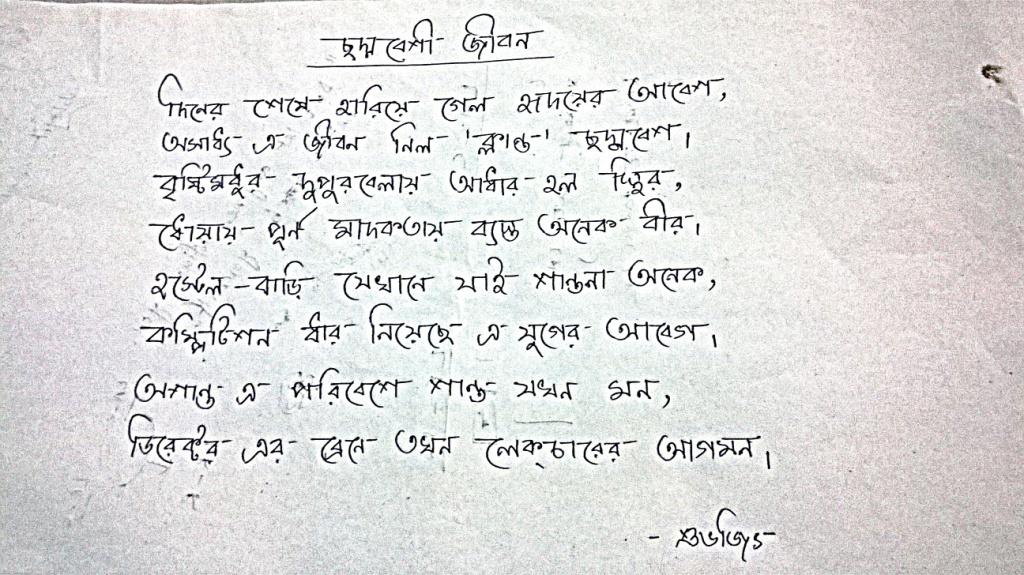 ছদ্মবেশী জীবন
দিনের শেষে হারিয়ে গেল হৃদয়ের আবেশ,
অসাধ্য এ জীবন নিল 'ক্লান্ত' ছদ্মবেশ।
বৃষ্টিমধুর দুপুরবেলায় আধার হল
ধোঁয়ায় পূর্ন মাদকতায় ব্যস্ত অনেক বীর।
হস্টেল-বাড়ি যেখানে যাই শান্তনা অনেক,
কম্পিটিশন ধার নিয়েছে এ যুগের আবেগ।
অশান্ত এ পরিবেশে শান্ত যখন মন,
ডিরেক্টর এর ব্রেনে তখন লেক্চারের আগমন।
- শুভজিৎ